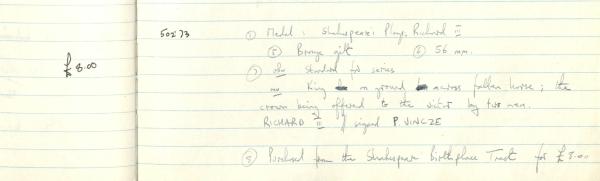 £8.00
50273 ① Medal: Shakespeare: Plays, Richard III
⑤ Bronze gilt ⑥ 56 mm.
⑦ obv Standard for series
rev King on ground across fallen horse; the
crown being offered to the victor by two men.
RICHARD III / signed P. VINCZE
⑧ Purchased from the Shakespeare Birthplace Trust for £8.00